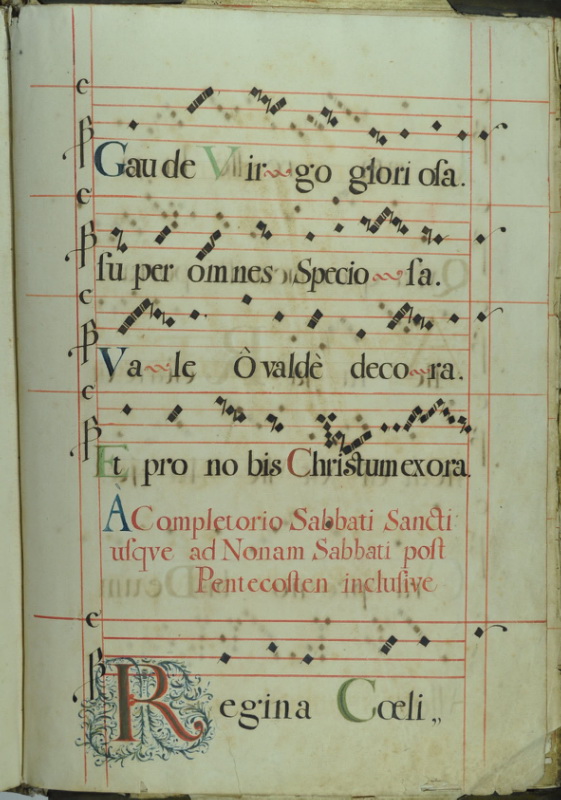 Gau de Vir~go glori oſa.
ſu per omnes Specio~ſa.
Va~le Ò valdè deco~ra.
Et pro no bis Christum exora.
À Completorio Sabbati Sancti
uſqve ad Nonam Sabbati poſt
Pentecoſten incluſive
Regina Cœli,,